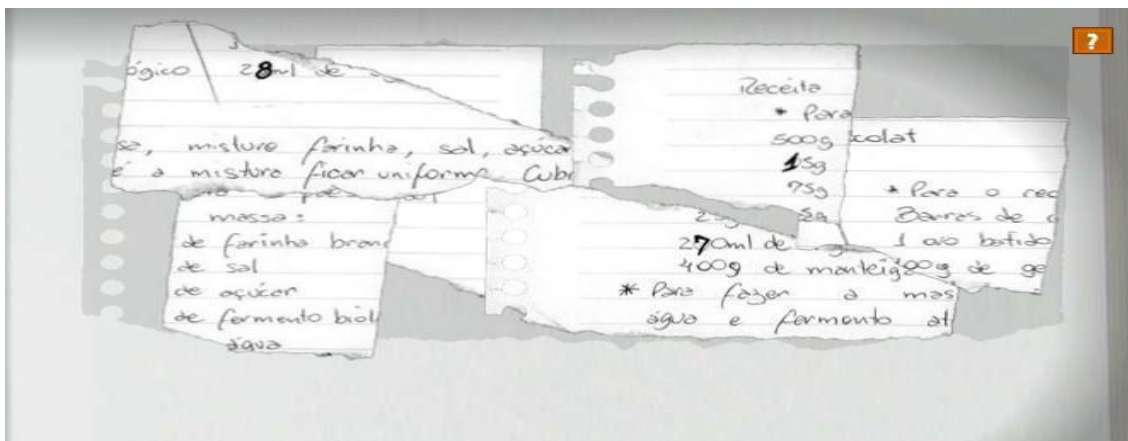 ógico 28ml de
sa, misture farinha, sal, açúcar
é a mistura ficar uniforme. Cubr
massa:
de farinha branc
de sal
de açúcar
de fermento biol
água
Receita
* Para
500g
15g
75g
25g
5g
270ml de
400g de manteig
* Para fazer a mas
água e fermento at
colat
* Para o rec
Barras de c
1 ovo batido
00g de ge
?